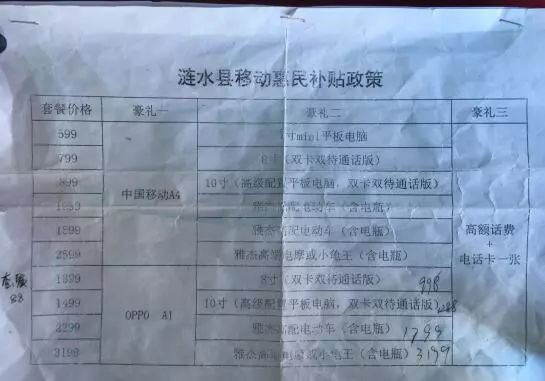 涟水县移动惠民补贴政策
套餐价格 豪礼一 豪礼二 豪礼三
599 7寸mini平板电脑
799 8寸(双卡双待通话版)
899 10寸(高级配置平板电脑,双卡双待通话版)
中国移动A4
雅杰高配电动车(含电瓶)
1899 雅杰高配电动车(含电瓶)
高额话费
+
电话卡一张
2599 雅杰高端电摩或小龟王(含电瓶)
1399 8寸(双卡双待通话版) 998
套餐
88
1499 10寸(高级配置平板电脑,双卡双待通话版)
OPPO A1
2299 雅杰高配电动车(含电瓶) 1799
3199 雅杰高端电摩或小龟王(含电瓶) 3199